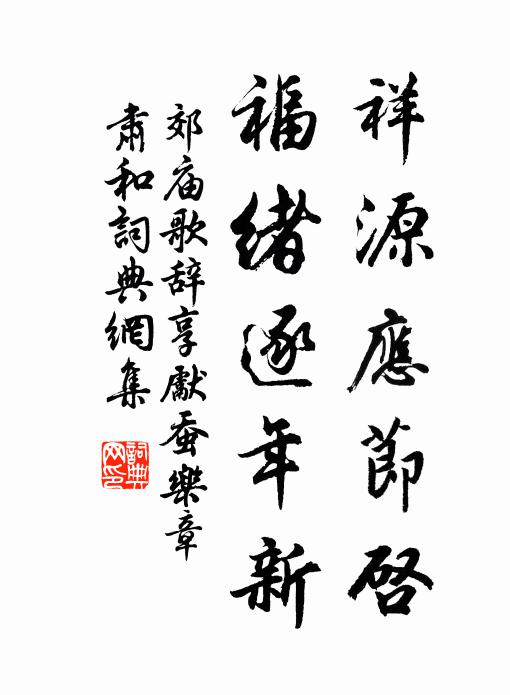 祥源應節啓
福緒逐年新
郊庙歌辞享獻蚕樂章
肅和詞典網集
詞典网印